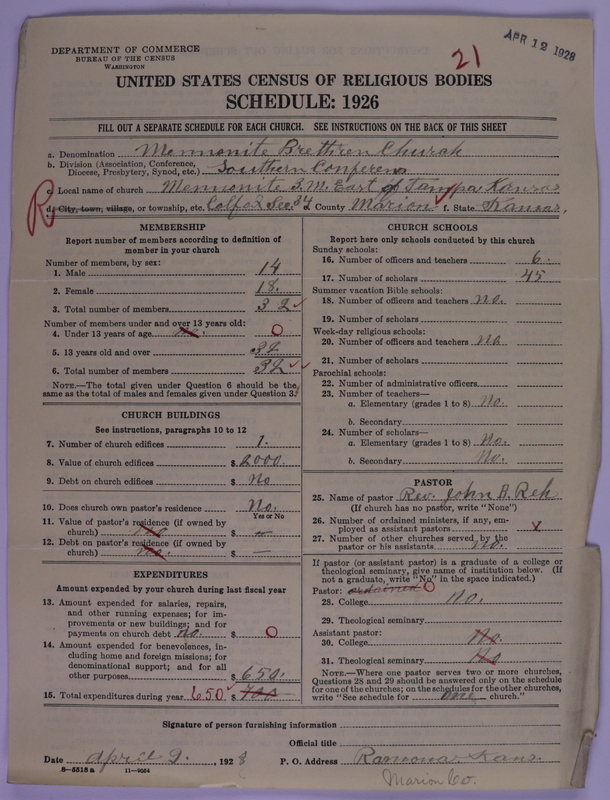 APR 12 1928
21
DEPARTMENT OF COMMERCE
BUREAU OF THE CENSUS
WASHINGTON
UNITED STATES CENSUS OF RELIGIOUS BODIES
SCHEDULE: 1926
FILL OUT A SEPARATE SCHEDULE FOR EACH CHURCH. SEE INSTRUCTIONS ON THE BACK OF THIS SHEET
a. Denomination Mennonite Brethren Church
b. Division (Association, Conference, Diocese, Presbytery, Synod, etc.) Southern Conferens
c. Local name of church Mennonite 3. M. East of Tampa Kansas
R
d. City, town, village, or township, etc. Colfax Sec 34 e. County Marion f. State Kansas.
MEMBERSHIP
Report number of members according to definition of
member in your church
Number of members, by sex:
1. Male 14
2. Female 18.
3. Total number of members 32
Number of members under and over 13 years old:
4. Under 13 years of age no. 0
5. 13 years old and over 32
6. Total number of members 32
NOTE.—The total given under Question 6 should be the
same as the total of males and females given under Question 3.
CHURCH BUILDINGS
See instructions, paragraphs 10 to 12
7. Number of church edifices 1.
8. Value of church edifices $ 2000.
9. Debt on church edifices $ No
10. Does church own pastor's residence No.
Yes or No
11. Value of pastor's residence (if owned by
church) no $ —
12. Debt on pastor's residence (if owned by
church) no. $ —
EXPENDITURES
Amount expended by your church during last fiscal year
13. Amount expended for salaries, repairs,
and other running expenses; for im-
provements or new buildings; and for
payments on church debt no. $ 0
14. Amount expended for benevolences, in-
cluding home and foreign missions; for
denominational support; and for all
other purposes $ 650.
15. Total expenditures during year 650 $
CHURCH SCHOOLS
Report here only schools conducted by this church
Sunday schools:
16. Number of officers and teachers 6.
17. Number of scholars 45
Summer vacation Bible schools:
18. Number of officers and teachers no.
19. Number of scholars
Week-day religious schools:
20. Number of officers and teachers No
21. Number of scholars
Parochial schools:
22. Number of administrative officers
23. Number of teachers—
a. Elementary (grades 1 to 8) No.
b. Secondary
24. Number of scholars—
a. Elementary (grades 1 to 8) No.
b. Secondary No.
PASTOR
25. Name of pastor Rev. John B. Reh
(If church has no pastor, write "None")
26. Number of ordained ministers, if any, em-
ployed as assistant pastors x
27. Number of other churches served by the
pastor or his assistants No.
If pastor (or assistant pastor) is a graduate of a college or
theological seminary, give name of institution below. (If
not a graduate, write "No" in the space indicated.)
Pastor: ordained 0
28. College no.
29. Theological seminary
Assistant pastor:
30. College No.
31. Theological seminary No
NOTE.—Where one pastor serves two or more churches,
Questions 28 and 29 should be answered only on the schedule
for one of the churches; on the schedules for the other churches,
write "See schedule for one church."
Signature of person furnishing information
Official title
Date April 9. , 1928 P. O. Address Ramona. Kans.
8—5518 a 11—9024
Marion Co.